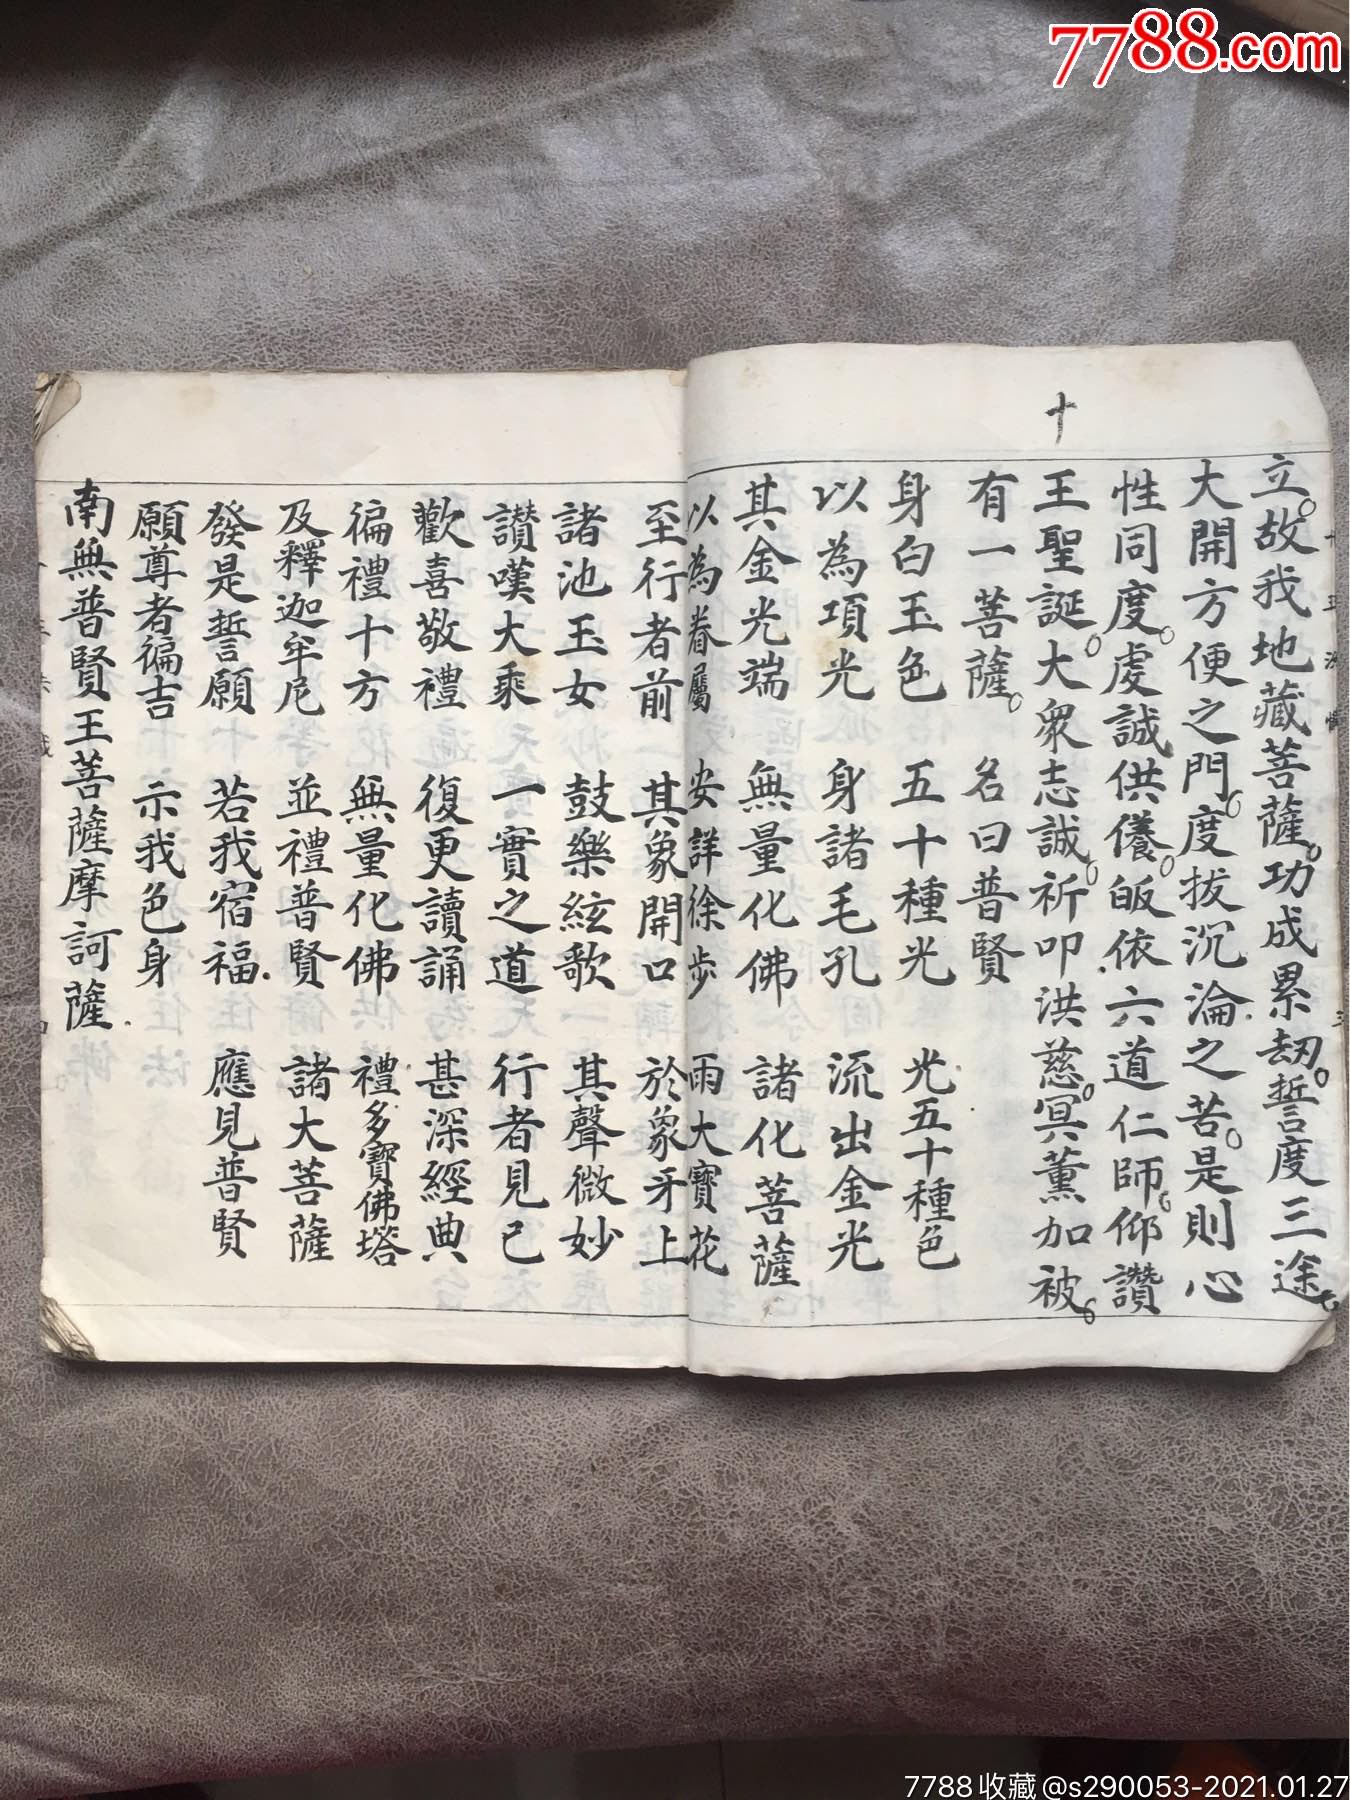 7788.com
十
立故我地藏菩薩功成累刼誓度三途
大開方便之門度拔沉淪之苦是則心
性同度虔誠供養皈依六道仁師仰讚
王聖誕大衆志誠祈叩洪慈冥薰加被
有一菩薩 名曰普賢
身白玉色 五十種光 光五十種色
以為項光 身諸毛孔 流出金光
其金光端 無量化佛 諸化菩薩
以為眷屬 安詳徐步 雨大寶花
至行者前 其象開口 於象牙上
諸池玉女 鼓樂絃歌 其聲微妙
讃嘆大乘 一實之道 行者見已
歡喜敬禮 復更讀誦 甚深經典
徧禮十方 無量化佛 禮多寶佛塔
及釋迦牟尼 並禮普賢 諸大菩薩
發是誓願 若我宿福 應見普賢
願尊者徧吉 示我色身
南無普賢王菩薩摩訶薩
7788收藏@s290053-2021.01.27